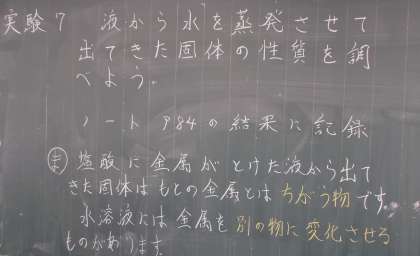 実験7 液から水を蒸発させて
出てきた固体の性質を調
べよう。
ノートP84の結果に記録
ま 塩酸に金属がとけた液から出て
きた固体はもとの金属とはちがう物です。
水溶液には金属を別の物に変化させる
ものがあります